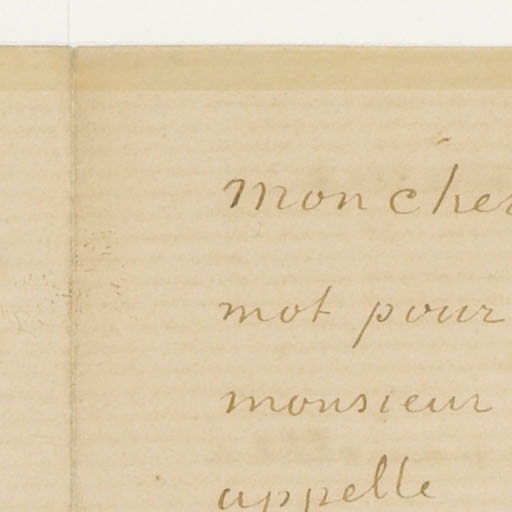 mon cher
mot pour
monsieur
appelle